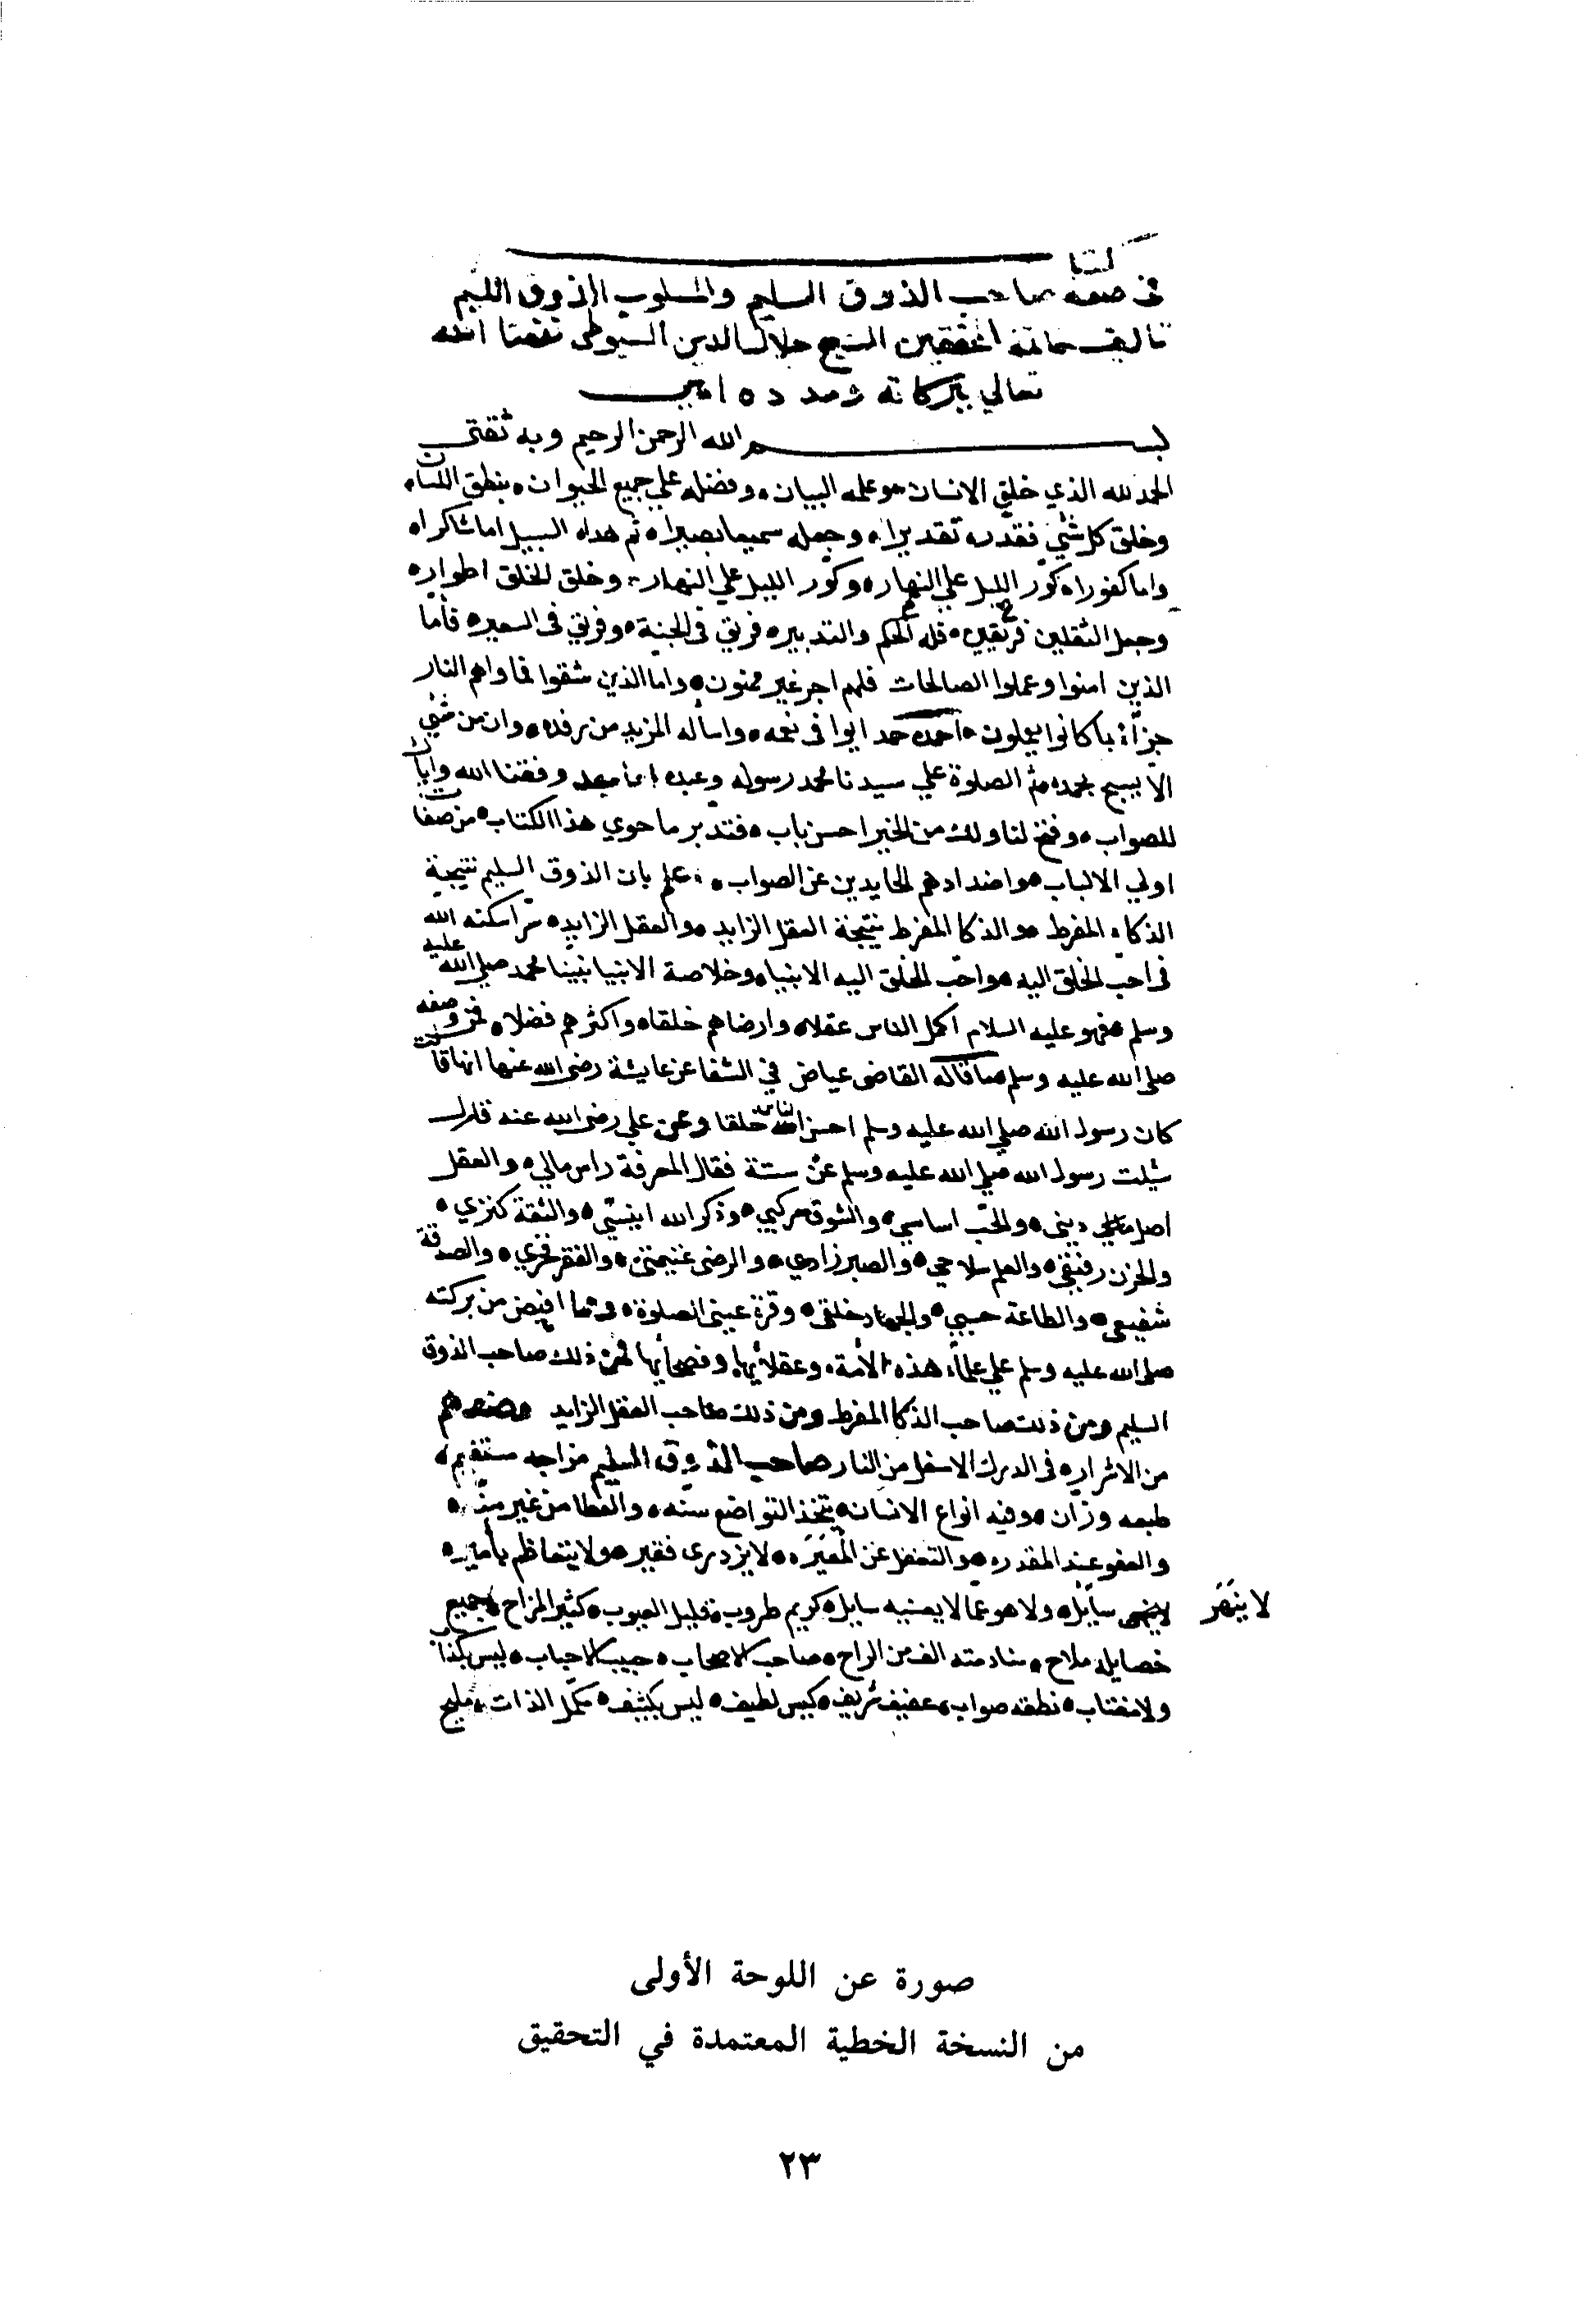 كتاب
في صفة صاحب الذوق السليم والمسلوب الذوق اللئيم
تاليف خاتمة المحققين الشيخ جلال الدين السيوطي نفعنا الله
تعالي ببركاته ومدده امين
بسم الله الرحمن الرحيم وبه ثقتي
الحمد لله الذي خلق الانسان وعلمه البيان، وفضله علي جميع الحيوان، بنطق اللسان
وخلق كل شيء فقدره تقديرا، وجعله سميعا بصيرا، ثم هداه السبيل اما شاكرا،
واما كفورا، كوّر الليل علي النهار، وكوّر الليل علي النهار، وخلق الخلق اطوارا،
وجعل الثقلين فريقين، فله الحكم والتدبير، فريق في الجنة، وفريق في السعير، فأما
الذين امنوا وعملوا الصالحات فلهم اجر غير ممنون، واما الذين شقوا فماواهم النار
جزآء بما كانوا يعملون، احمده حمد ا يوافي نعمه، واساله المزيد من رفده، وان من شيء
الا يسبح بحمده، ثم الصلوة علي سيدنا محمد رسوله وعبده اما بعد وفقنا الله واياك
للصواب، وفتح لنا ولك من الخير احسن باب، فتدبر ما حوي هذا الكتاب، من صفات
اولي الالباب، واضدادهم الحايدين عن الصواب، علم بان الذوق السليم نتيجة
الذكاء المفرط، والذكا المفرط نتيجة العقل الزايد، والعقل الزايد، سرّ اسكنه الله
في احب الخلق اليه، واحبّ الخلق اليه الانبياء، وخلاصة الانبيا نبينا محمد صلي الله عليه
وسلم، فهو عليه السلام اكمل الناس عقلا، وارضاهم خلقا، واكثرهم فضلا، فمن وصفه
صلي الله عليه وسلم ما قاله القاضي عياض في الشفا عن عايشة رضي الله عنها انها قالت
كان رسول الله صلي الله عليه وسلم احسن الناس خلقا وعن علي رضي الله عنه قال
سئلت رسول الله صلي الله عليه وسلم عن سنته فقال المعرفة راس مالي، والعقل
اصل ديني، والحبّ اساسي، والشوق مركبي، وذكر الله انيسي، والثقة كنزي،
والحزن رفيقي، والعلم سلاحي، والصبر زادي، والرضي غنيمتي، والفقر فخري، والصدقة
شفيعي، والطاعة حسبي، والجهاد خلقي، وقرة عيني الصلوة، ومما افيض من بركته
صلي الله عليه وسلم علي علمآء هذه الأمة، وعقلائها وفصحائها فمن ذلك صاحب الذوق
السليم ومن ذلك صاحب الذكا المفرط ومن ذلك صاحب العقل الزايد وضدهم
من الاشرار، في الدرك الاسفل من النار صاحب الذوق السليم مزاجه مستقيم،
طبعه وزان، وفيه انواع الانسان، يتخذ التواضع سنه، والعطا من غير منّه،
والعفو عند المقدره، والتغفل عن المعيره، لا يزدري فقير، ولا يتعاظم بأمير،
لا ينهى سايل، ولا هو عما لا يعنيه سايل، كريم طروب، قليل العيوب، كثير المزاح، جميع
لا ينهَر
خصايله ملاح، منادمته الف من الراح، صاحب الاصحاب، حبيب الاحباب، ليس بكذاب
ولا مغتاب، نطقه صواب، عفيف شريف، كيس لطيف، ليس بكثيف، مكمّل الذات، مليح
صورة عن اللوحة الأولى
من النسخة الخطية المعتمدة في التحقيق
٢٣